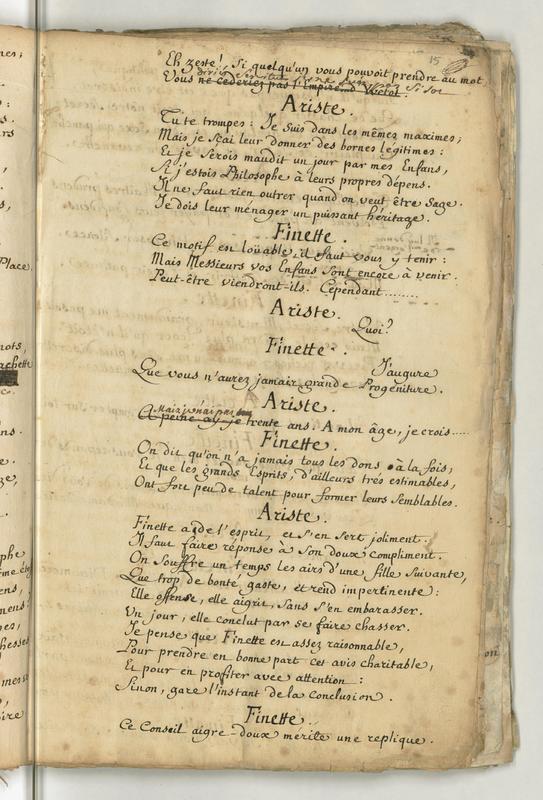 15
Eh zeste! Si quelqu'un vous pouvoit prendre au mot
Vous ne cederiez pas l'Empire
Ariste.
Tu te trompes: Je suis dans les mêmes maximes;
Mais je sçai leur donner des bornes légitimes:
Et je serois maudit un jour par mes Enfans,
Si j'estois Philosophe à leurs propres dépens.
Il ne faut rien outrer quand on veut être Sage.
Je dois leur ménager un puissant héritage.
Finette.
Ce motif est loüable, il faut vous y tenir:
Mais Messieurs vos Enfans sont encore à venir.
Peut-être viendront-ils. Cependant........
Ariste.
Quoi?
Finette.
J'augure
Que vous n'aurez jamais grande Progéniture.
Ariste.
Mais je n'ai pas
A peine ay-je trente ans. A mon âge, je crois.....
Finette.
On dit qu'on n'a jamais tous les dons à la fois,
Et que les grands Esprits, d'ailleurs très estimables,
Ont fort peu de talent pour former leurs Semblables.
Ariste.
Finette a de l'esprit, et s'en sert joliment.
Il faut faire réponse à son doux compliment.
On Souffre un temps les airs d'une fille suivante,
Que trop de bonté, gaste, et rend impertinente:
Elle offense, elle aigrit, sans s'en embarasser.
Un jour, elle conclut par se faire chasser.
Je pense que Finette est assez raisonnable,
Pour prendre en bonne part cet avis charitable,
Et pour en profiter avec attention:
Sinon, gare l'instant de la conclusion.
Finette.
Ce Conseil aigre-doux merite une replique.